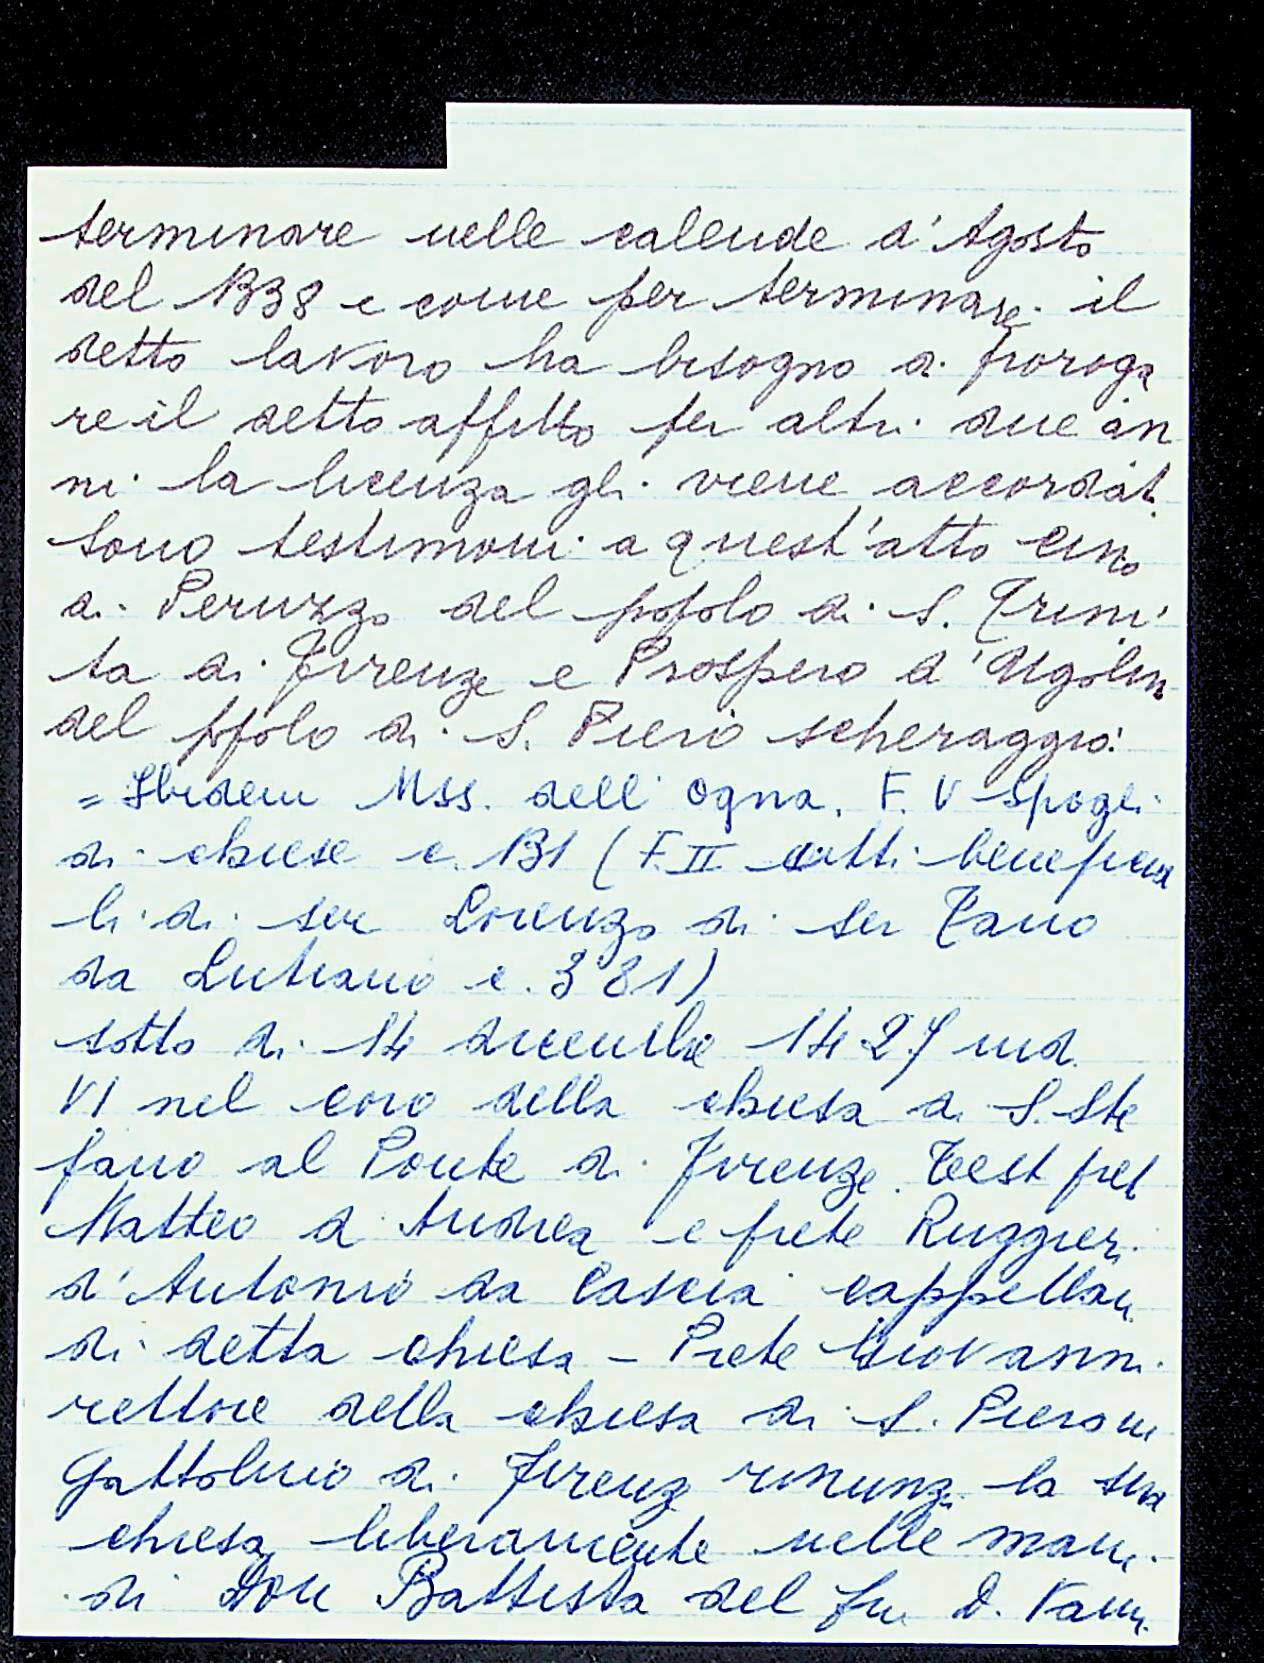 terminare nelle calende d'Agosto
del 1338 e come per terminare il
detto lavoro ha bisogno di proroga
re il detto affitto per altri due an
ni la licenza gli viene accordat
sono testimoni a quest'atto Cino
di Peruzzo del popolo di S. Trini
ta di Firenze e Prospero d'Ugolin
del popolo di S. Piero scheraggio.
= Ibidem Mss. dell' Ogna. F. V Spogli
di chiese c. 131 (F. II atti beneficia
li di ser Lorenzo di ser Tano
da Lutiano c. 381)
sotto di 14 dicembre 1427 ind.
VI nel coro della chiesa di S. Ste
fano al Ponte di Firenze. Test pret
Matteo d'Andrea e prete Ruggier
d'Antonio da Cascia cappellani
di detta chiesa - Prete Giovanni
rettore della chiesa di S. Piero in
Gattolino di Firenz rinunzi la sua
chiesa liberamente nelle mani
di Don Battista del fu D. Vanni